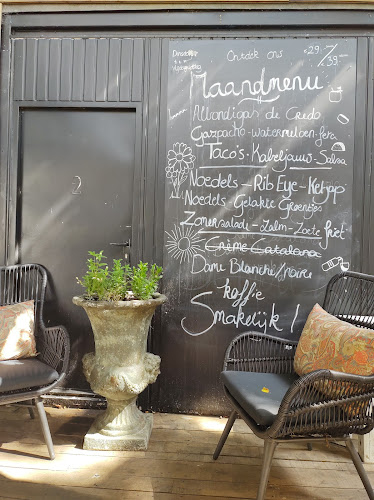 Ontdek ons €29-/39-
Maandmenu
Albondigas de Cerdo
Gazpacho-watermeloen-feta
Taco's-Kabeljauw-Salsa
Noedels-Rib Eye-Ketjap
Noedels-Gelakte Groentjes
Zomersalade-Zalm-Zoete friet
Crème Catalana
Dame Blanche/noire
koffie
Smakelijk!